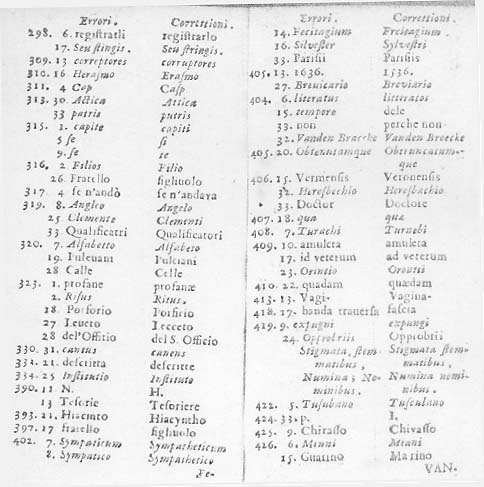 Errori. Correttioni.
298. 6. registratli registrarlo
17. Seu stingis. Seu stringis.
309. 13 correptores corruptores
310. 16 Herasmo Erasmo
311. 4 Cap Casp
313. 30 Attica Attica
33 patris putris
315. 1. capite capiti
5 se si
9. se se
316. 2 Filios Filio
26. Fratello figliuolo
317. 4 se n'andò se n'andava
319. 8. Angleo Angelo
25. Clemente Clementi
33. Qualificatri Qualificatori
320. 7. Alfabetto Alfabeto
19. Fulcuani Fulciani
28 Calle Celle
323. 1. profane profanæ
2. Risus Ritus.
18 Porforio Porfirio
27 Leueto Lecceto
28 del'Offitio del S. Officio
330. 31. cantus canens
332. 21. descritta descritte
334. 25 Institutio Instituto
390. 11 N. H.
13 Tesorie Tesoriere
393. 21. Hiacinto Hiacyntho
397. 17 fratello figliuolo
402. 7. Sympaticum Sympatheticum
8. Sympatico Sympathetico
Fe-
Errori. Correttioni.
14. Fecitagium Freitagium.
16. Silvester Sylvestri
33. Parisii Parisiis
405. 13. 1636. 1536.
27. Breuicario Breviario
404. 6. literatus litteratos
15. tempore dele
33. non perche non
32. Vanden Braecke Vanden Broecke
405. 20. Obtenutamque Obtruncatum-
que
406. 15. Vermensis Veronensis
32. Heresbechio Heresbachio
33. Doctor Doctore
407. 18. qua quæ
408. 7. Turaebi Turnebi
409. 10. amuleta amuleta
17. id veterum ad veterum
23. Orintio Orontii
410. 22. quadam quædam
413. 13. Vagi- Vagina-
418. 17. banda trauersa fascia
419. 9. expugni expungi
24. Opprobriis Opprobrii
Stigmata, stem- Stigmata stem-
matibus, matibus,
Numina; No- Numina nomi-
minibus. nibus.
422. 5. Tusubano Tusculano
424. 33. p. I.
425. 9. Chirasso Chivasso
426. 6. Minni Miani
15. Guarino Marino
VAN.